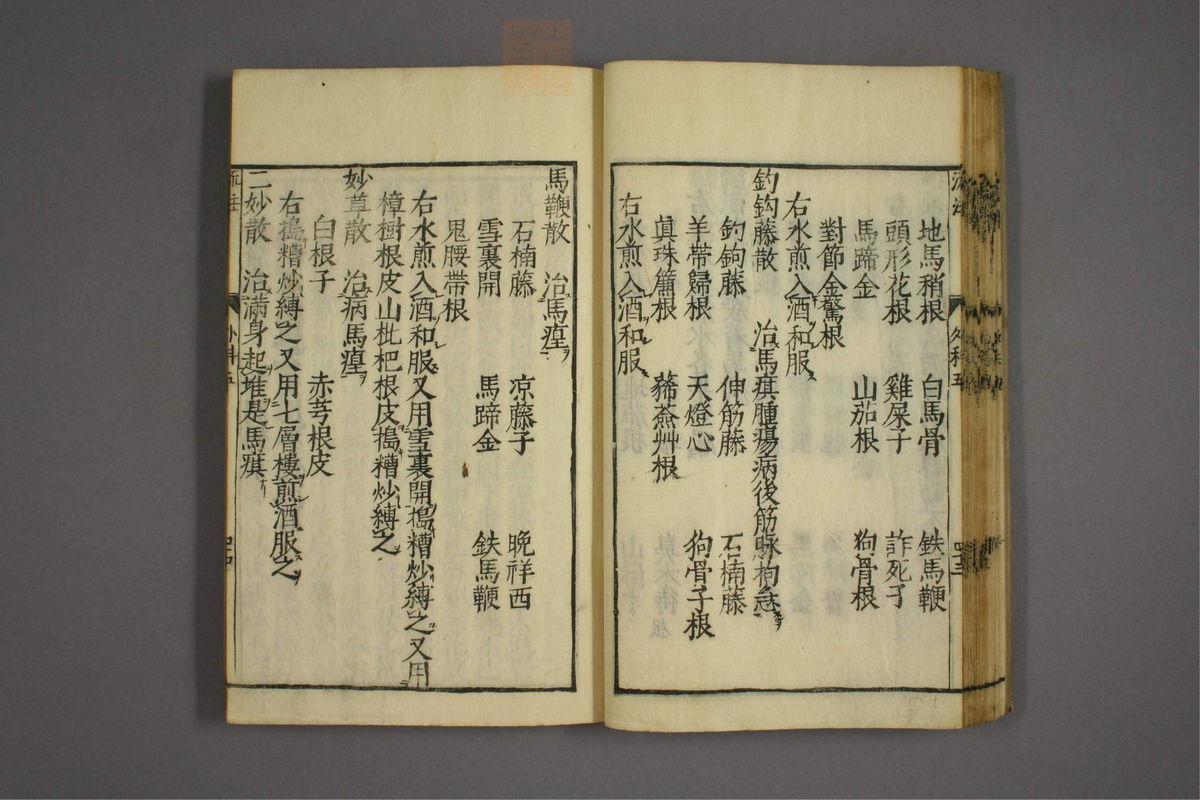 地馬稍根 白馬骨 鉄馬鞭
頭形花根 雞屎子 詐死子
馬蹄金 山茄根 狗骨根
對節金鵞根
右水煎入酒和服
釣鈎藤散 治馬㾮腫瘍病後筋脉拘急
釣鈎藤 伸筋藤 石楠藤
羊帶歸根 天燈心 狗骨子根
眞珠簫根 蓊蔫艸根
右水煎入酒和服
馬鞭散 治馬㾮
石楠藤 凉藤子 晚祥西
雪裏開 馬蹄金 鉄馬鞭
鬼腰帶根
右水煎入酒和服又用雪裏開搗糟炒縛之又用
樟樹根皮山枇杷根皮搗糟炒縛之
妙草散 治病馬㾮
白根子 赤芎根皮
右搗糟炒縛之又用七層樓煎酒服之
二妙散 治滿身起堆是馬㾮